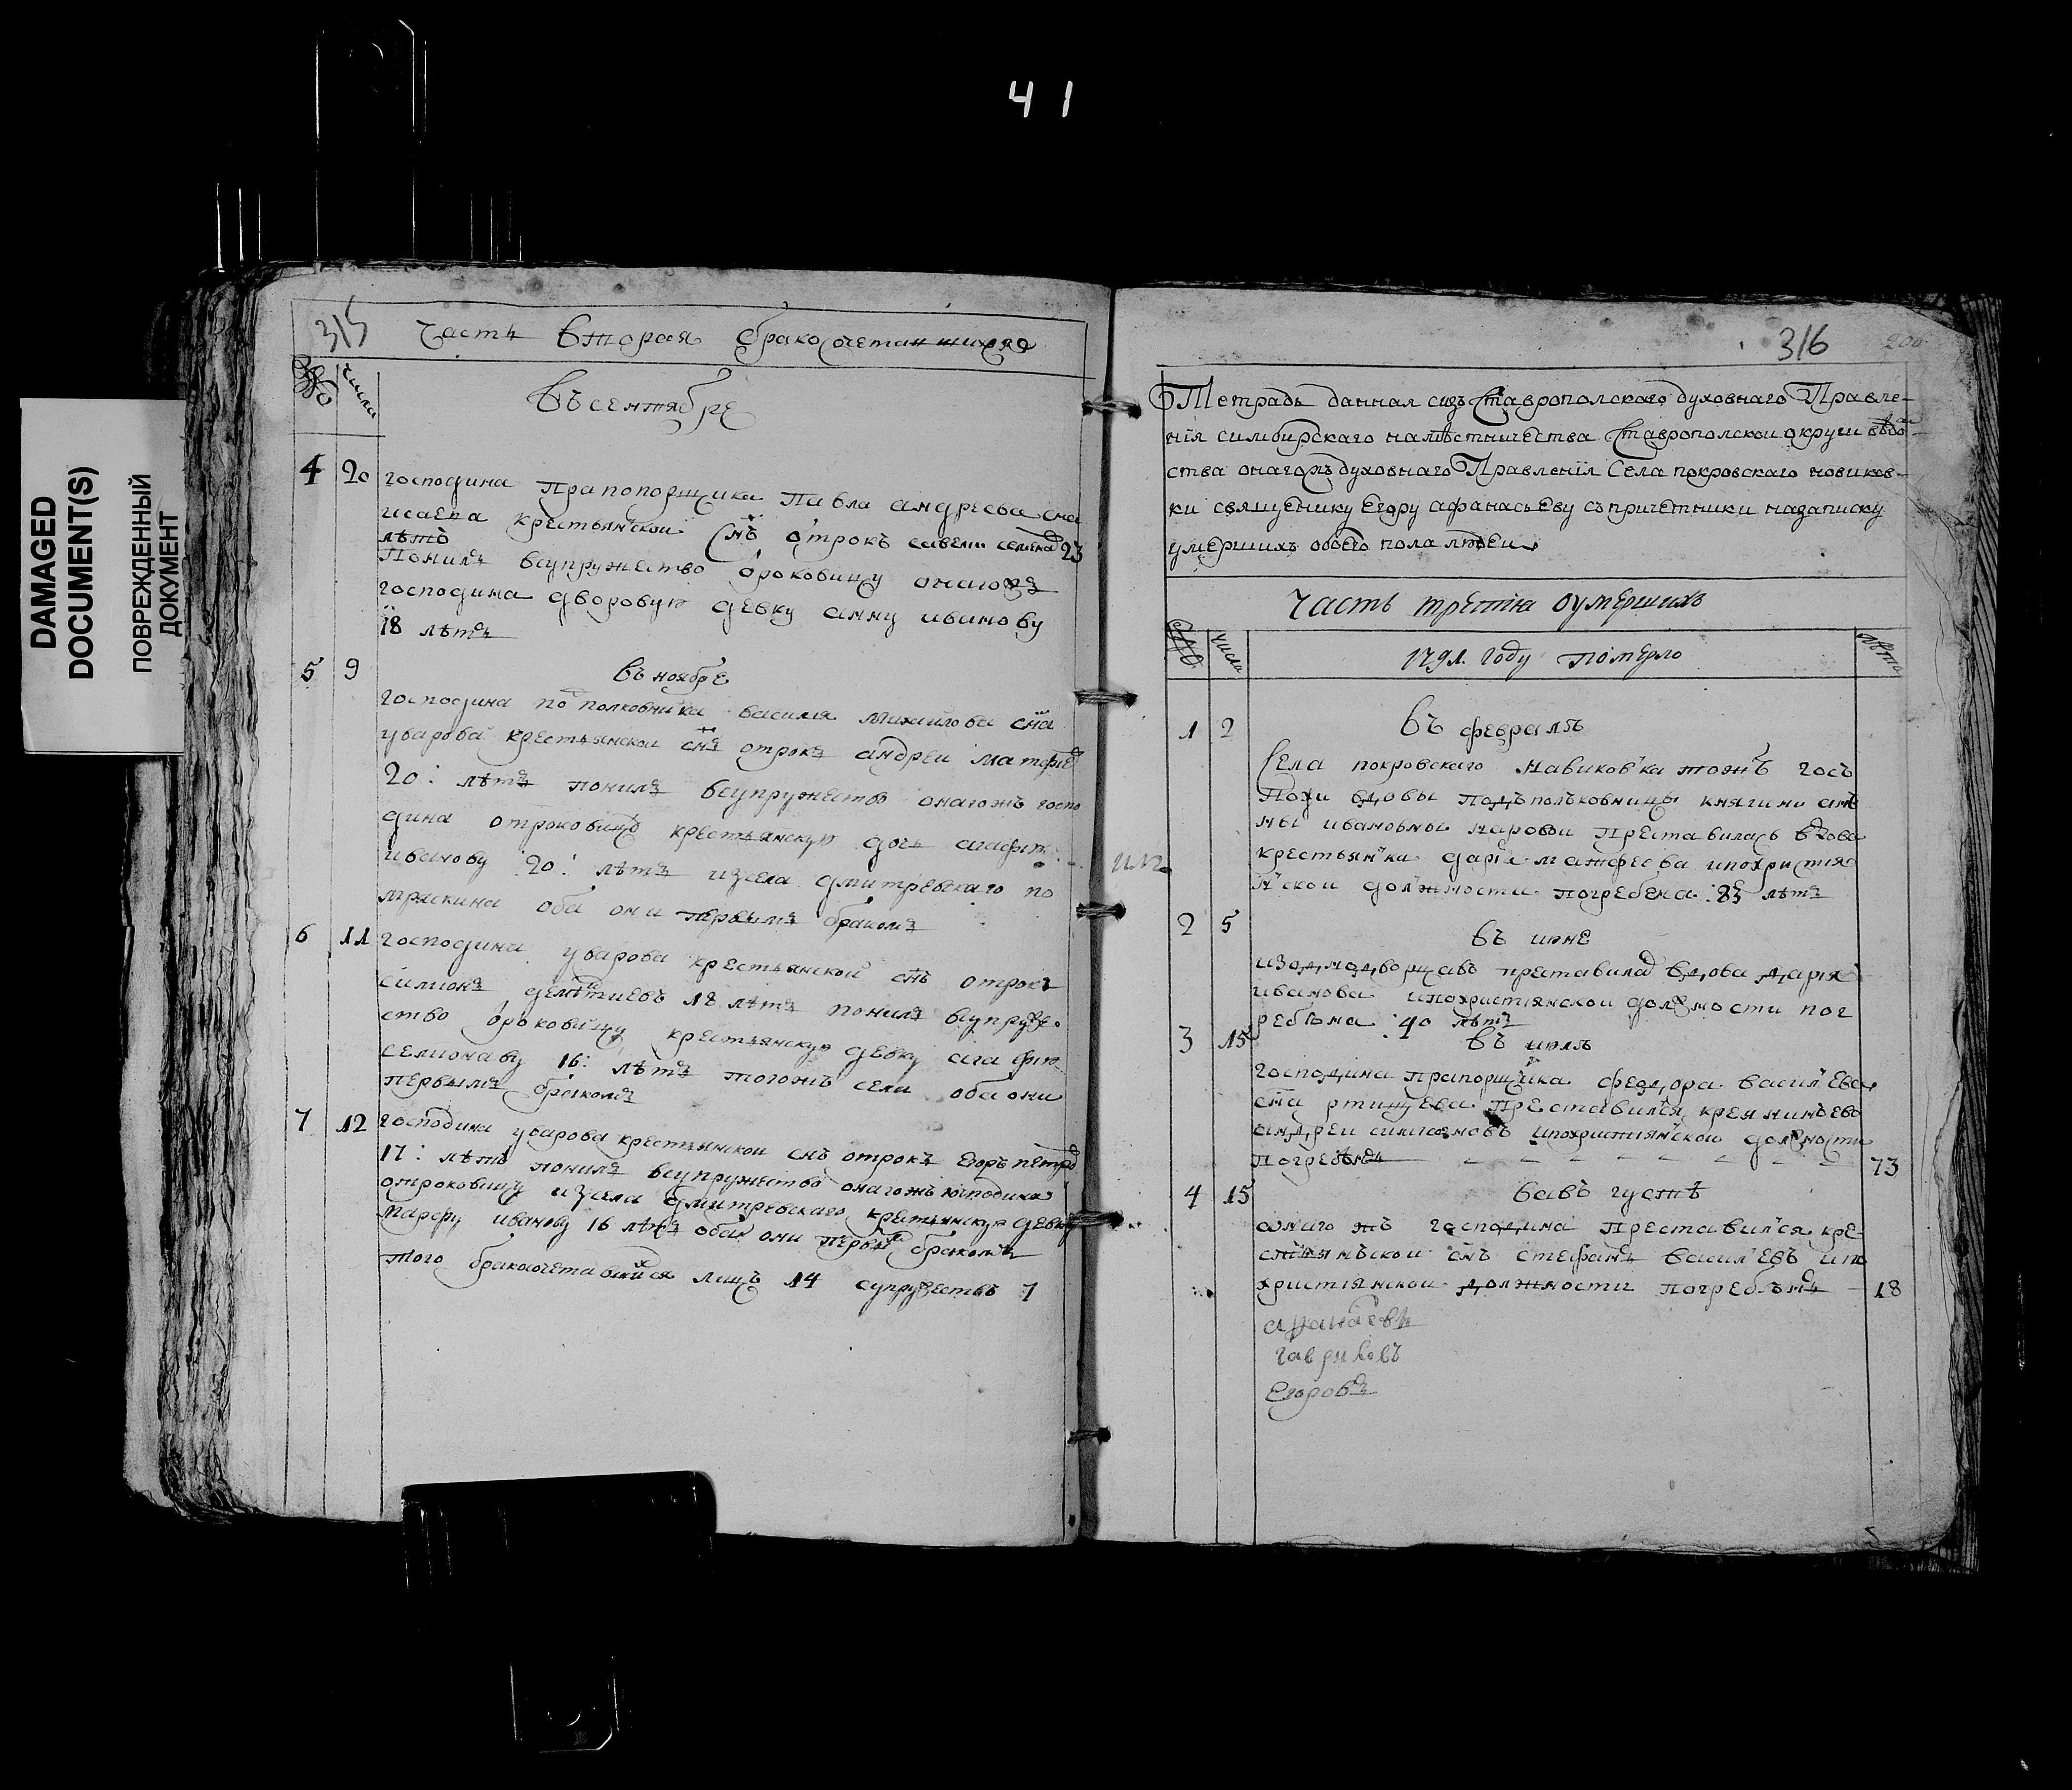 41
DAMAGED
DOCUMENT(S)
ПОВРЕЖДЕННЫЙ
ДОКУМЕНТ
315
Часть вторая бракосочетавшихся
числа
въ сентябре
4 20 господина Прапопорщика Павла андреева сна
исаева крестьянской снъ отрокъ савели семенов 23
лѣтъ
Понялъ всупружество ороковицу онагожъ
господина дворовую девку анну иванову
18 лѣтъ
въ ноябре
5 9 господина по полковника василя михаилова сна
уварова крестьянской снъ отрокъ андреи матфеѣ
20: лѣтъ понялъ всупружество онагожъ госпо
дина отроковицу крестьянскую дочь агафю
иванову :20: лѣтъ изсела дмитревскаго по
тряскина оба они первымъ бракомъ
6 11 господина уварова крестьянской снъ отрокъ
симионъ 18 лѣтъ понялъ всупруже
ство ороковицу крестьянскую девку агафю
семионаву 16: лѣтъ тогожъ села оба они
первымъ бракомъ
7 12 господина уварова крестьянской снъ отрокъ егоръ петро
17: лѣтъ понялъ всупружество онагожъ господина
отроковицу изсела дмитревскаго крестьянскую девку
марфу иванову 16 лѣтъ оба они первым бракомъ
того бракосочетавшися лицъ 14 супружествъ 7
316
200
Тетрадь данная изъ Ставрополскаго духовнаго Правле-
нїя симбирскаго намѣстничества Ставрополскои округи вѣдом
ства онагожъ духовнаго Правленїя Села покровскаго новиков-
ки священику Егору афанасьеву съпричетники назаписку
умершихъ обоего пола людеи
Часть третїя оумершихъ
числа
1791. году померло
лѣта
въ февралѣ
1 2
Села покровскаго Навиковка тожъ гос
пожи вдовы подъполъковницы княгини ан
ны ивановны преставилась вдова
крестьянка дарїя матфеева ипохристия
нской должности погребена 83 лѣтъ
въ июне
2 5
изоднодворцавъ преставила вдова дарїя
иванова ипохристїянской должности пог
ребѣна :40 лѣтъ
въ июлѣ
3 15
господина прапорщика федора васильева
сна ртищева Преставился
андреи симионовъ ипохристиянской должности
погребѣнъ 73
вавъ густѣ
4 15
онаго жъ господина преставился кре
стиянъской снъ стефанъ васильевъ ипо
христїянской должности погребѣнъ 18
гавриловъ
Егоровъ